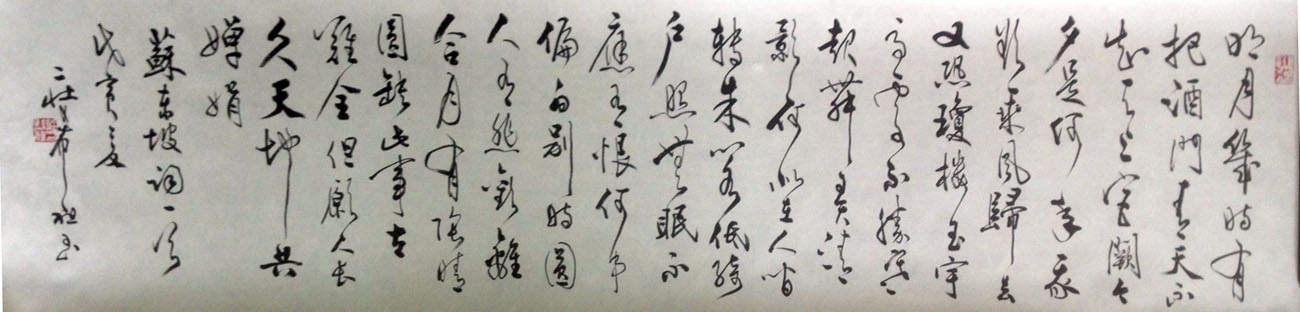 明月幾時有
把酒問青天不
知天上宮闕今
夕是何年我
欲乘風歸去
又恐瓊樓玉宇
高處不勝寒
起舞弄清
影何似在人間
轉朱閣低綺
戶照無眠不
應有恨何事
偏向別時圓
人有悲歡離
合月有陰晴
圓缺此事古
難全但願人長
久天地共
嬋娟
蘇東坡詞一首
戊寅夏